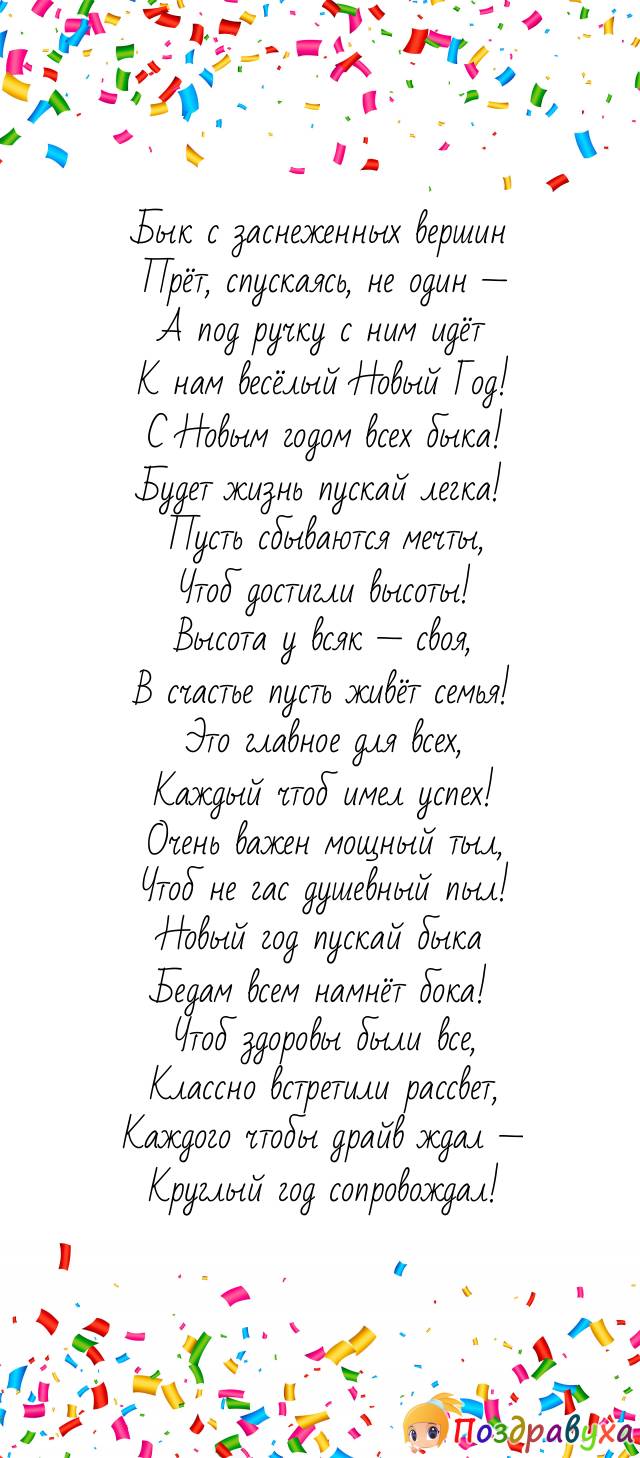 Бык с заснеженных вершин
Прёт, спускаясь, не один —
А под ручку с ним идёт
К нам весёлый Новый Год!
С Новым годом всех быка!
Будет жизнь пускай легка!
Пусть сбываются мечты,
Чтоб достигли высоты!
Высота у всяк — своя,
В счастье пусть живёт семья!
Это главное для всех,
Каждый чтоб имел успех!
Очень важен мощный тыл,
Чтоб не гас душевный пыл!
Новый год пускай быка
Бедам всем намнёт бока!
Чтоб здоровы были все,
Классно встретили рассвет,
Каждого чтобы драйв ждал —
Круглый год сопровождал!
Поздравуха